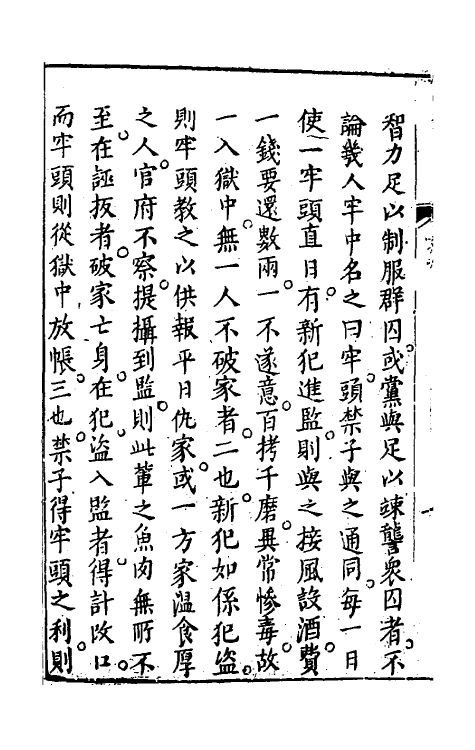 智力足以制服群囚或黨與足以竦讋衆囚者不
論幾人牢中名之曰牢頭禁子與之通同每一日
使一牢頭直日有新犯進監則與之接風設酒費
一錢要還數兩一不遂意百拷千磨異常慘毒故
一入獄中無一人不破家者二也新犯如係犯盜
則牢頭教之以供報平日仇家或一方家溫食厚
之人官府不察提攝到監則此輩之魚肉無所不
至在誣扳者破家亡身在犯盜入監者得計改口
而牢頭則從獄中放帳三也禁子得牢頭之利則